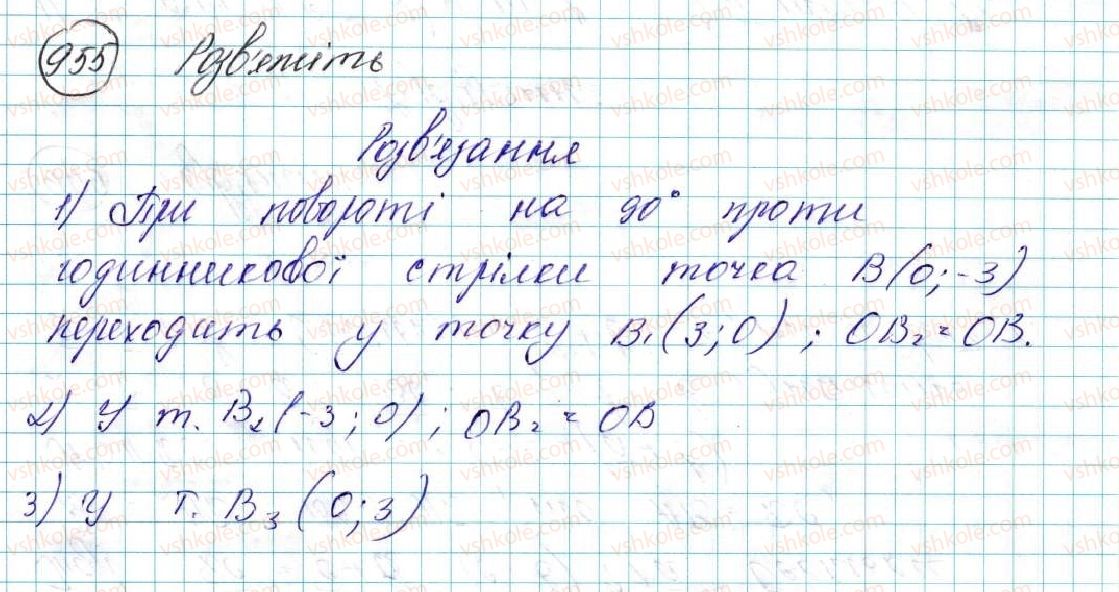 955 Розв'яжіть
Розв'язання
1) При повороті на 90° проти
годинникової стрілки точка B(0;-3)
переходить у точку B₁(3;0); OB₂=OB.
2) У т. B₂(-3;0); OB₂=OB
3) У т. B₃(0;3)